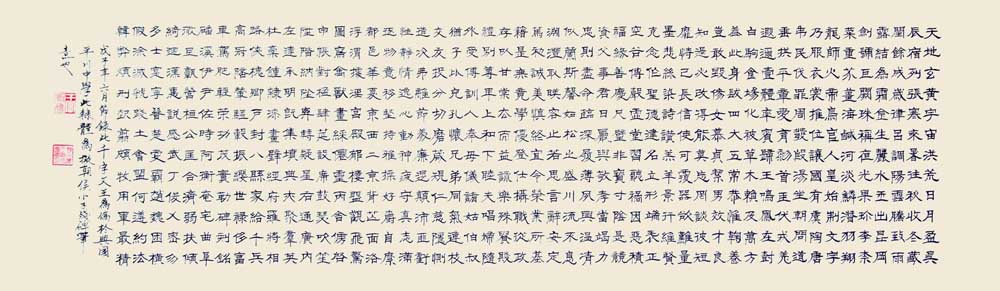 天地玄黃宇宙洪荒日月盈昃
辰宿列張寒來暑往秋收冬藏
閏餘成歲律呂調陽雲騰致雨
露結為霜金生麗水玉出崑岡
劍號巨闕珠稱夜光果珍李柰
菜重芥薑海鹹河淡鱗潛羽翔
龍師火帝鳥官人皇始制文字
乃服衣裳推位讓國有虞陶唐
弔民伐罪周發殷湯坐朝問道
垂拱平章愛育黎首臣伏戎羌
遐邇壹體率賓歸王鳴鳳在樹
白駒食場化被草木賴及萬方
蓋此身髮四大五常恭惟鞠養
豈敢毀傷女慕貞潔男效才良
知過必改得能莫忘罔談彼短
靡恃己長信使可覆器欲難量
墨悲絲染詩讚羔羊景行維賢
克念作聖德建名立形端表正
空谷傳聲虛堂習聽禍因惡積
福緣善慶尺璧非寶寸陰是競
資父事君曰嚴與敬孝當竭力
忠則盡命臨深履薄夙興溫凊
似蘭斯馨如松之盛川流不息
淵澄取映容止若思言辭安定
篤初誠美慎終宜令榮業所基
籍甚無竟學優登仕攝職從政
存以甘棠去而益詠樂殊貴賤
禮別尊卑上和下睦夫唱婦隨
外受傅訓入奉母儀諸姑伯叔
猶子比兒孔懷兄弟同氣連枝
交友投分切磨箴規仁慈隱惻
造次弗離節義廉退顛沛匪虧
性靜情逸心動神疲守真志滿
逐物意移堅持雅操好爵自縻
都邑華夏東西二京背芒面洛
浮渭據涇宮殿盤鬱樓觀飛驚
圖寫禽獸畫綵僊靈丙舍傍啟
甲帳對楹肆筵設席鼓瑟吹笙
陞階納陛弁轉疑星右通廣內
左達承明既集墳典亦聚群英
杜稾鍾隸漆書壁經府羅將相
路俠槐卿戶封八縣家給千兵
高冠陪輦驅轂振纓世祿侈富
車駕肥輕策功茂實勒碑刻銘
磻溪伊尹佐時阿衡奄宅曲阜
微旦孰營桓公匡合濟弱扶傾
綺迴漢惠說感武丁俊乂密勿
多士寔寧晉楚更霸趙魏困橫
假途滅虢踐土會盟何遵約法
韓弊煩刑起翦頗牧用軍最精
戊子年六月節錄此千字文王為偶於興國
平川中學此隸體為擬朝侯小子殘碑筆
意也